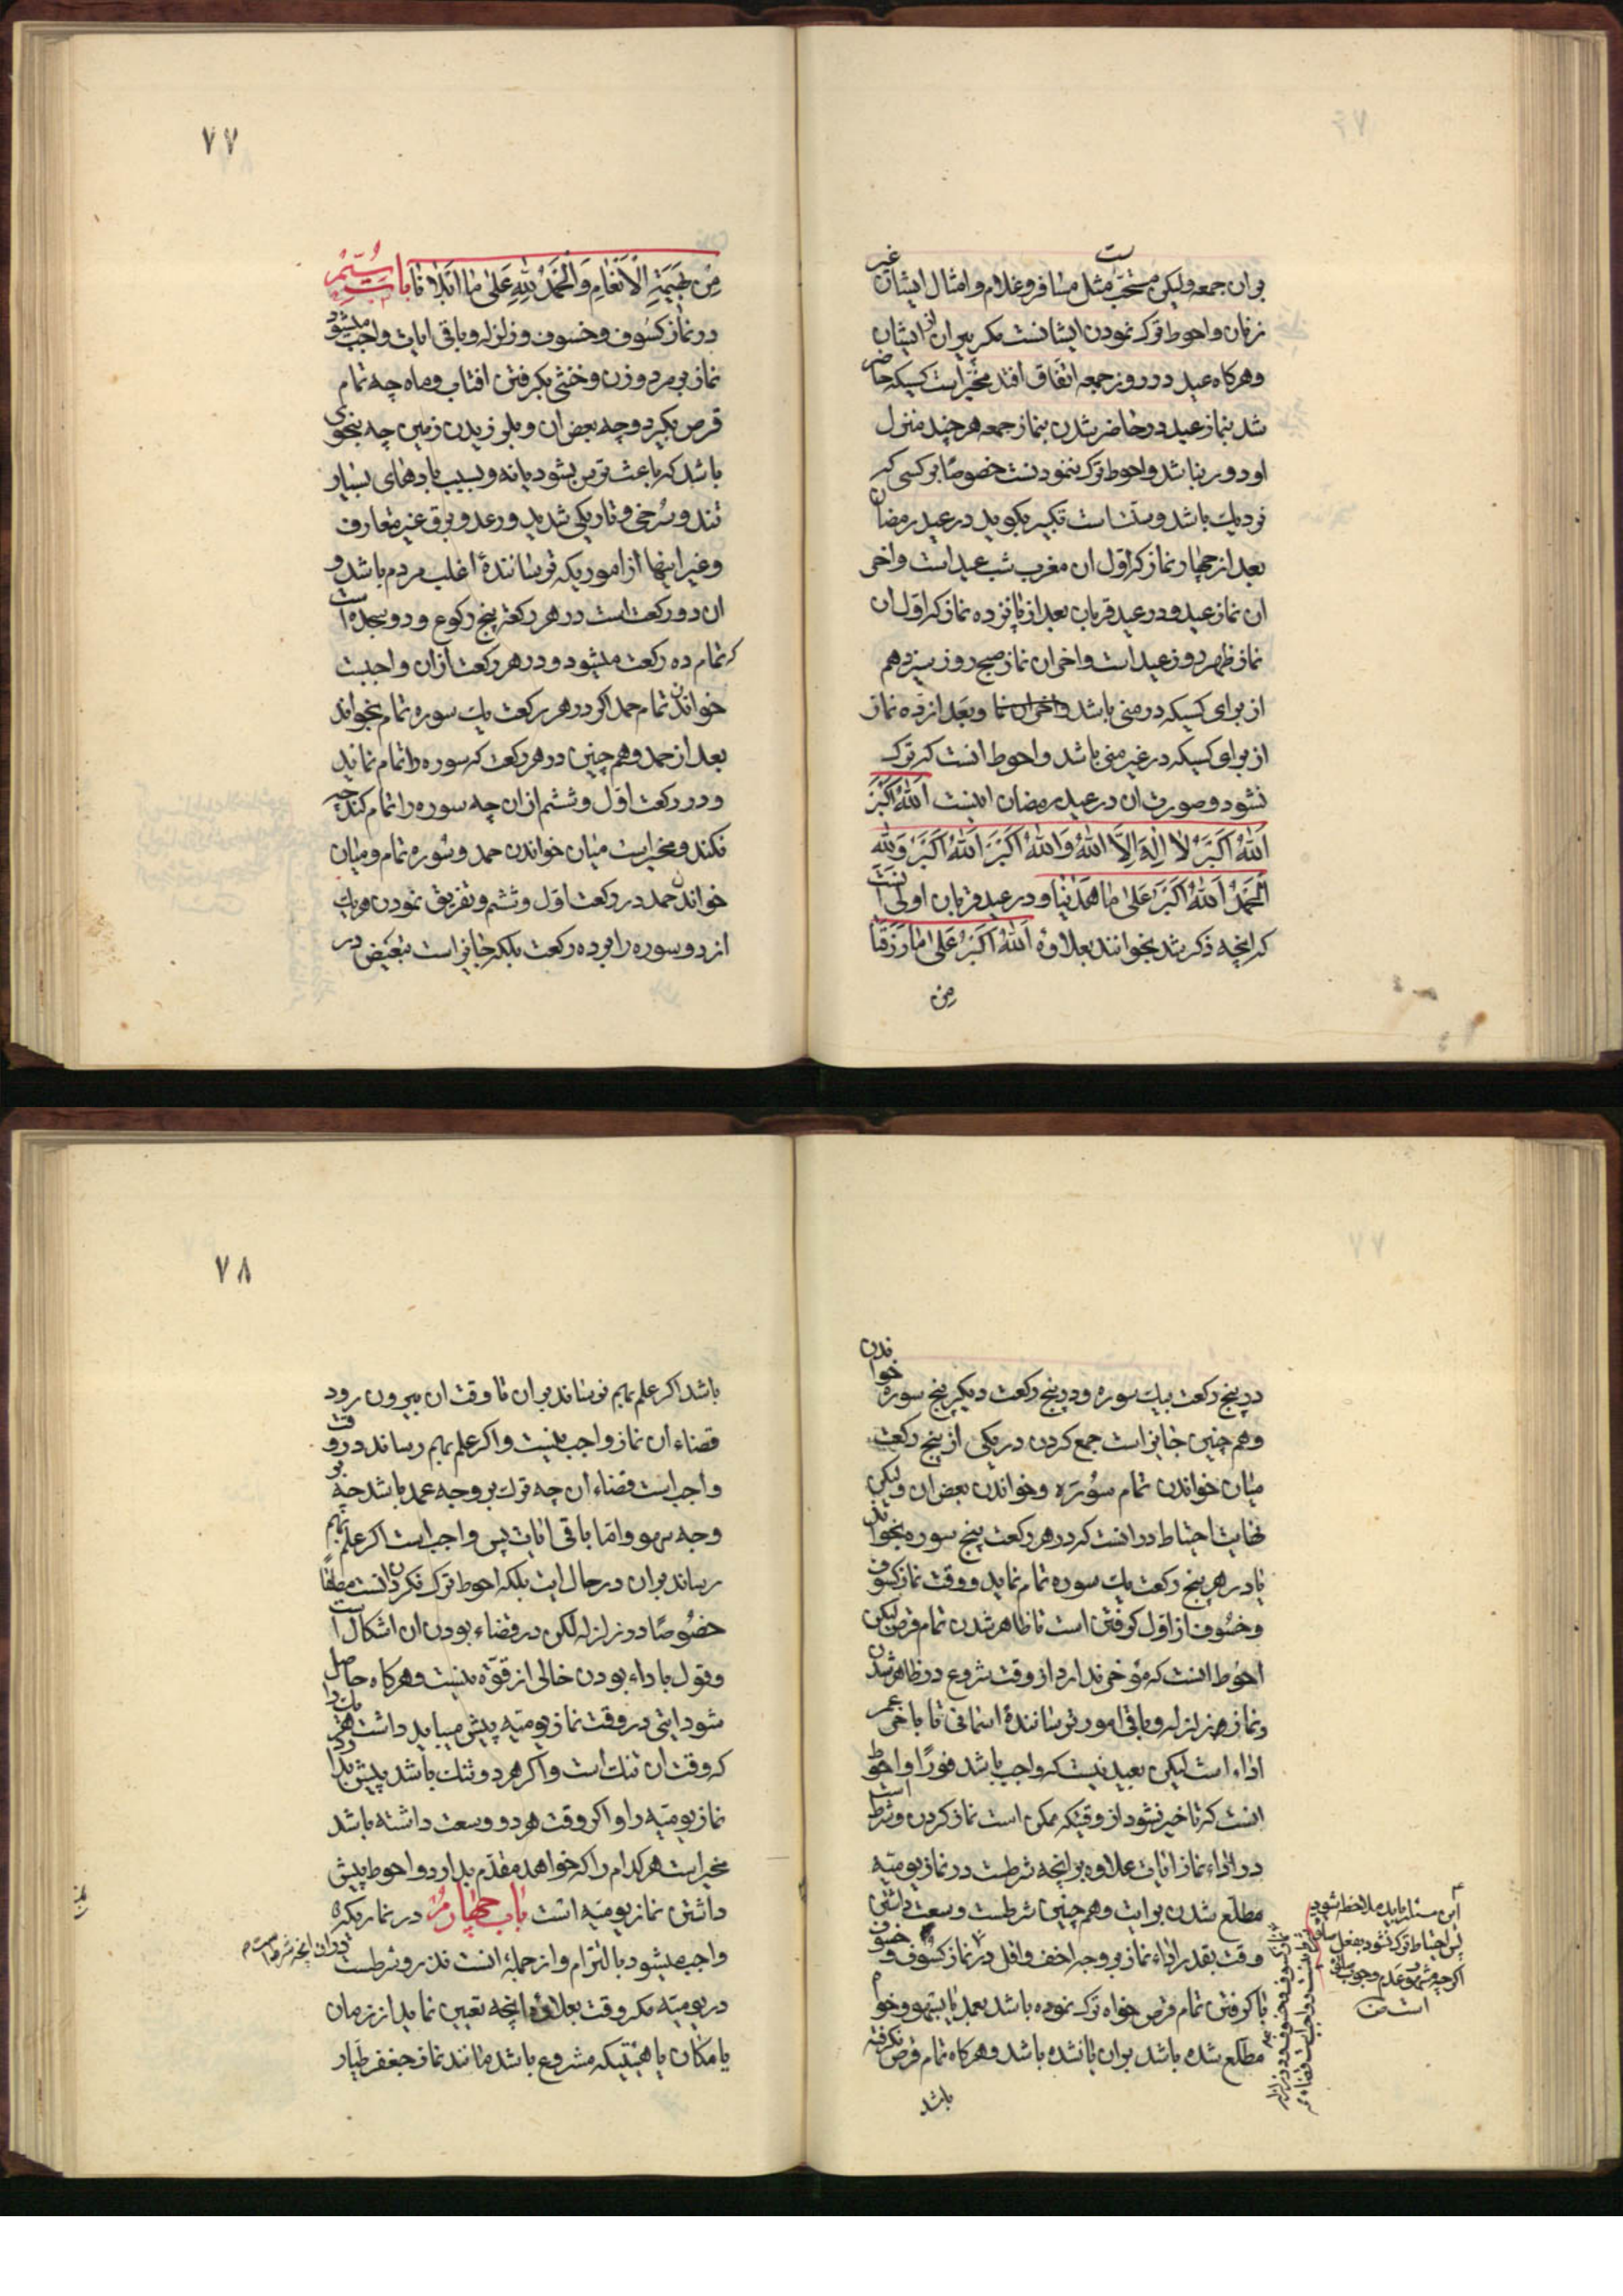 بر ان جمعه ولیکن مستحب است مثل مسافر و غلام و امثال ایشان غیر
زنان و احوط ترک نمودن ایشانست مکر پیران از ایشان
و هرکاه عید در روز جمعه اتفاق افتد مخیر است کسیکه حاضر
شد بنماز عید در حاضر شدن بنماز جمعه هر چند منزل
او دور نباشد و احوط ترک ننمودنست خصوصا بر کسی که
نزدیک باشد و سنت است تکبیر بکوید در عید رمضان
بعد از چهار نماز که اول ان مغرب شب عید است و اخر
ان نماز عید و در عید قربان بعد از پانزده نماز که اول ان
نماز ظهر روز عید است و اخر ان نماز صبح روز سیزدهم
از برای کسیکه در منی باشد و بعد از ده نماز
از برای کسیکه در غیر منی باشد و احوط انست که ترک
نشود و صورت ان در عید رمضان اینست اَللهُ اَکْبَرُ
اَللهُ اَکْبَرُ لا اِلهَ اِلَّا اللهُ وَاللهُ اَکْبَرُ اَللهُ اَکْبَرُ وَلِلّهِ
اَلْحَمْدُ اَللهُ اَکْبَرُ عَلی ما هَدینا و در عید قربان اولی انست
که انچه ذکر شد بخوانند بعلاوه اَللهُ اَکْبَرُ عَلی ما رَزَقَنا
مِن
۷۷
مِنْ بَهیمَةِ الْاَنْعامِ وَالْحَمْدُ لِلّهِ عَلی ما اَبْلانا باب سیّم
در نماز کسوف و خسوف و زلزله و باقی ایات واجب میشود
نماز بر مرد و زن و خنثی بکرفتن افتاب و ماه چه تمام
قرص بکیرد و چه بعض ان و بلرزیدن زمین چه بنحوی
باشد که باعث ترس بشود یا نه و بسبب بادهای بسیار
تند و سرخی و تاریکی شدید و رعد و برق غیر متعارف
و غیر اینها از اموریکه ترسانندهٔ اغلب مردم باشد و
ان دو رکعت است در هر رکعتی پنج رکوع و دو سجده است
که تمام ده رکعت میشود و در هر رکعت از ان واجبست
خواندن تمام حمد اکر در هر رکعت یک سوره تمام بخواند
بعد از حمد و هم چنین در هر رکعت که سوره را تمام نماید
و در رکعت اول و ششم از ان چه سوره را تمام کند چه
نکند و مخیر است میان خواندن حمد و سوره تمام و میان
خواندن حمد در رکعت اول و ششم و تفریق نمودن هر یک
از دو سوره را بر ده رکعت بلکه جایز است تبعیض در
در پنج رکعت بیک سوره و در پنج رکعت دیکر پنج سوره خواندن
و هم چنین جایز است جمع کردن در یکی از پنج رکعت
میان خواندن تمام سوره و خواندن بعض ان ولیکن
نهایت احتیاط در انست که در هر رکعت پنج سوره بخواند
یا در هر پنج رکعت یک سوره تمام نماید و وقت نماز کسوف
و خسوف از اول کرفتن است تا ظاهر شدن تمام قرص لیکن
احوط انست که مؤخر ندارد از وقت شروع در ظاهر شدن
و نماز زلزله و باقی امور ترسانندهٔ اسمانی تا باخر عمر
اداء است لیکن بعید نیست که واجب باشد فورا و احوط
انست که تاخیر نشود از وقتیکه ممکن است نماز کردن و شرط است
در اداء نماز ایات علاوه بر انچه شرطست در نماز یومیه
مطلع شدن بر ایت و هم چنین شرطست وسعت داشتن
وقت بقدر اداء نماز بر وجه اخف و اقل در نماز کسوف و خسوف
با کرفتن تمام قرص خواه ترک نموده باشد بعمد یا بسهو و خواه
مطلع شده باشد بر ان یا نشده باشد و هرکاه تمام قرص نکرفته
باشد
این مسئله باید ملاحظه شود
پس احتیاط ترک نشود بفعل
اکرچه وجوب
است
۷۸
باشد اکر علم بهم نرساند بر ان تا وقت ان بیرون رود
قضاء ان نماز واجب نیست و اکر علم بهم رساند در وقت
واجب است قضاء ان چه ترک بر وجه عمد باشد چه بر
وجه سهو و اما باقی ایات پس واجب است اکر علم بهم
رساند بر ان در حال ایت بلکه احوط ترک نکردن انست مطلقا
خصوصا در زلزله لکن در قضاء بودن ان اشکال است
و قول باداء بودن خالی از قوّه نیست و هرکاه حاصل
شود ایتی در وقت نماز یومیه پیش میباید داشت هر یک را
که وقت ان تنک است و اکر هر دو تنک باشد پیش بدارد
نماز یومیه را و اکر وقت هر دو وسعت داشته باشد
مخیر است هر کدام را که خواهد مقدم بدارد و احوط پیش
داشتن نماز یومیه است باب چهارم در نمازیکه
واجب میشود بالتزام و از جملهٔ انست نذر و شرطست در ان انچه شرط است
در یومیه مکر وقت بعلاوه انچه تعیین نماید از زمان
یا مکان یا هیئتیکه مشروع باشد مانند نماز جعفر طیار